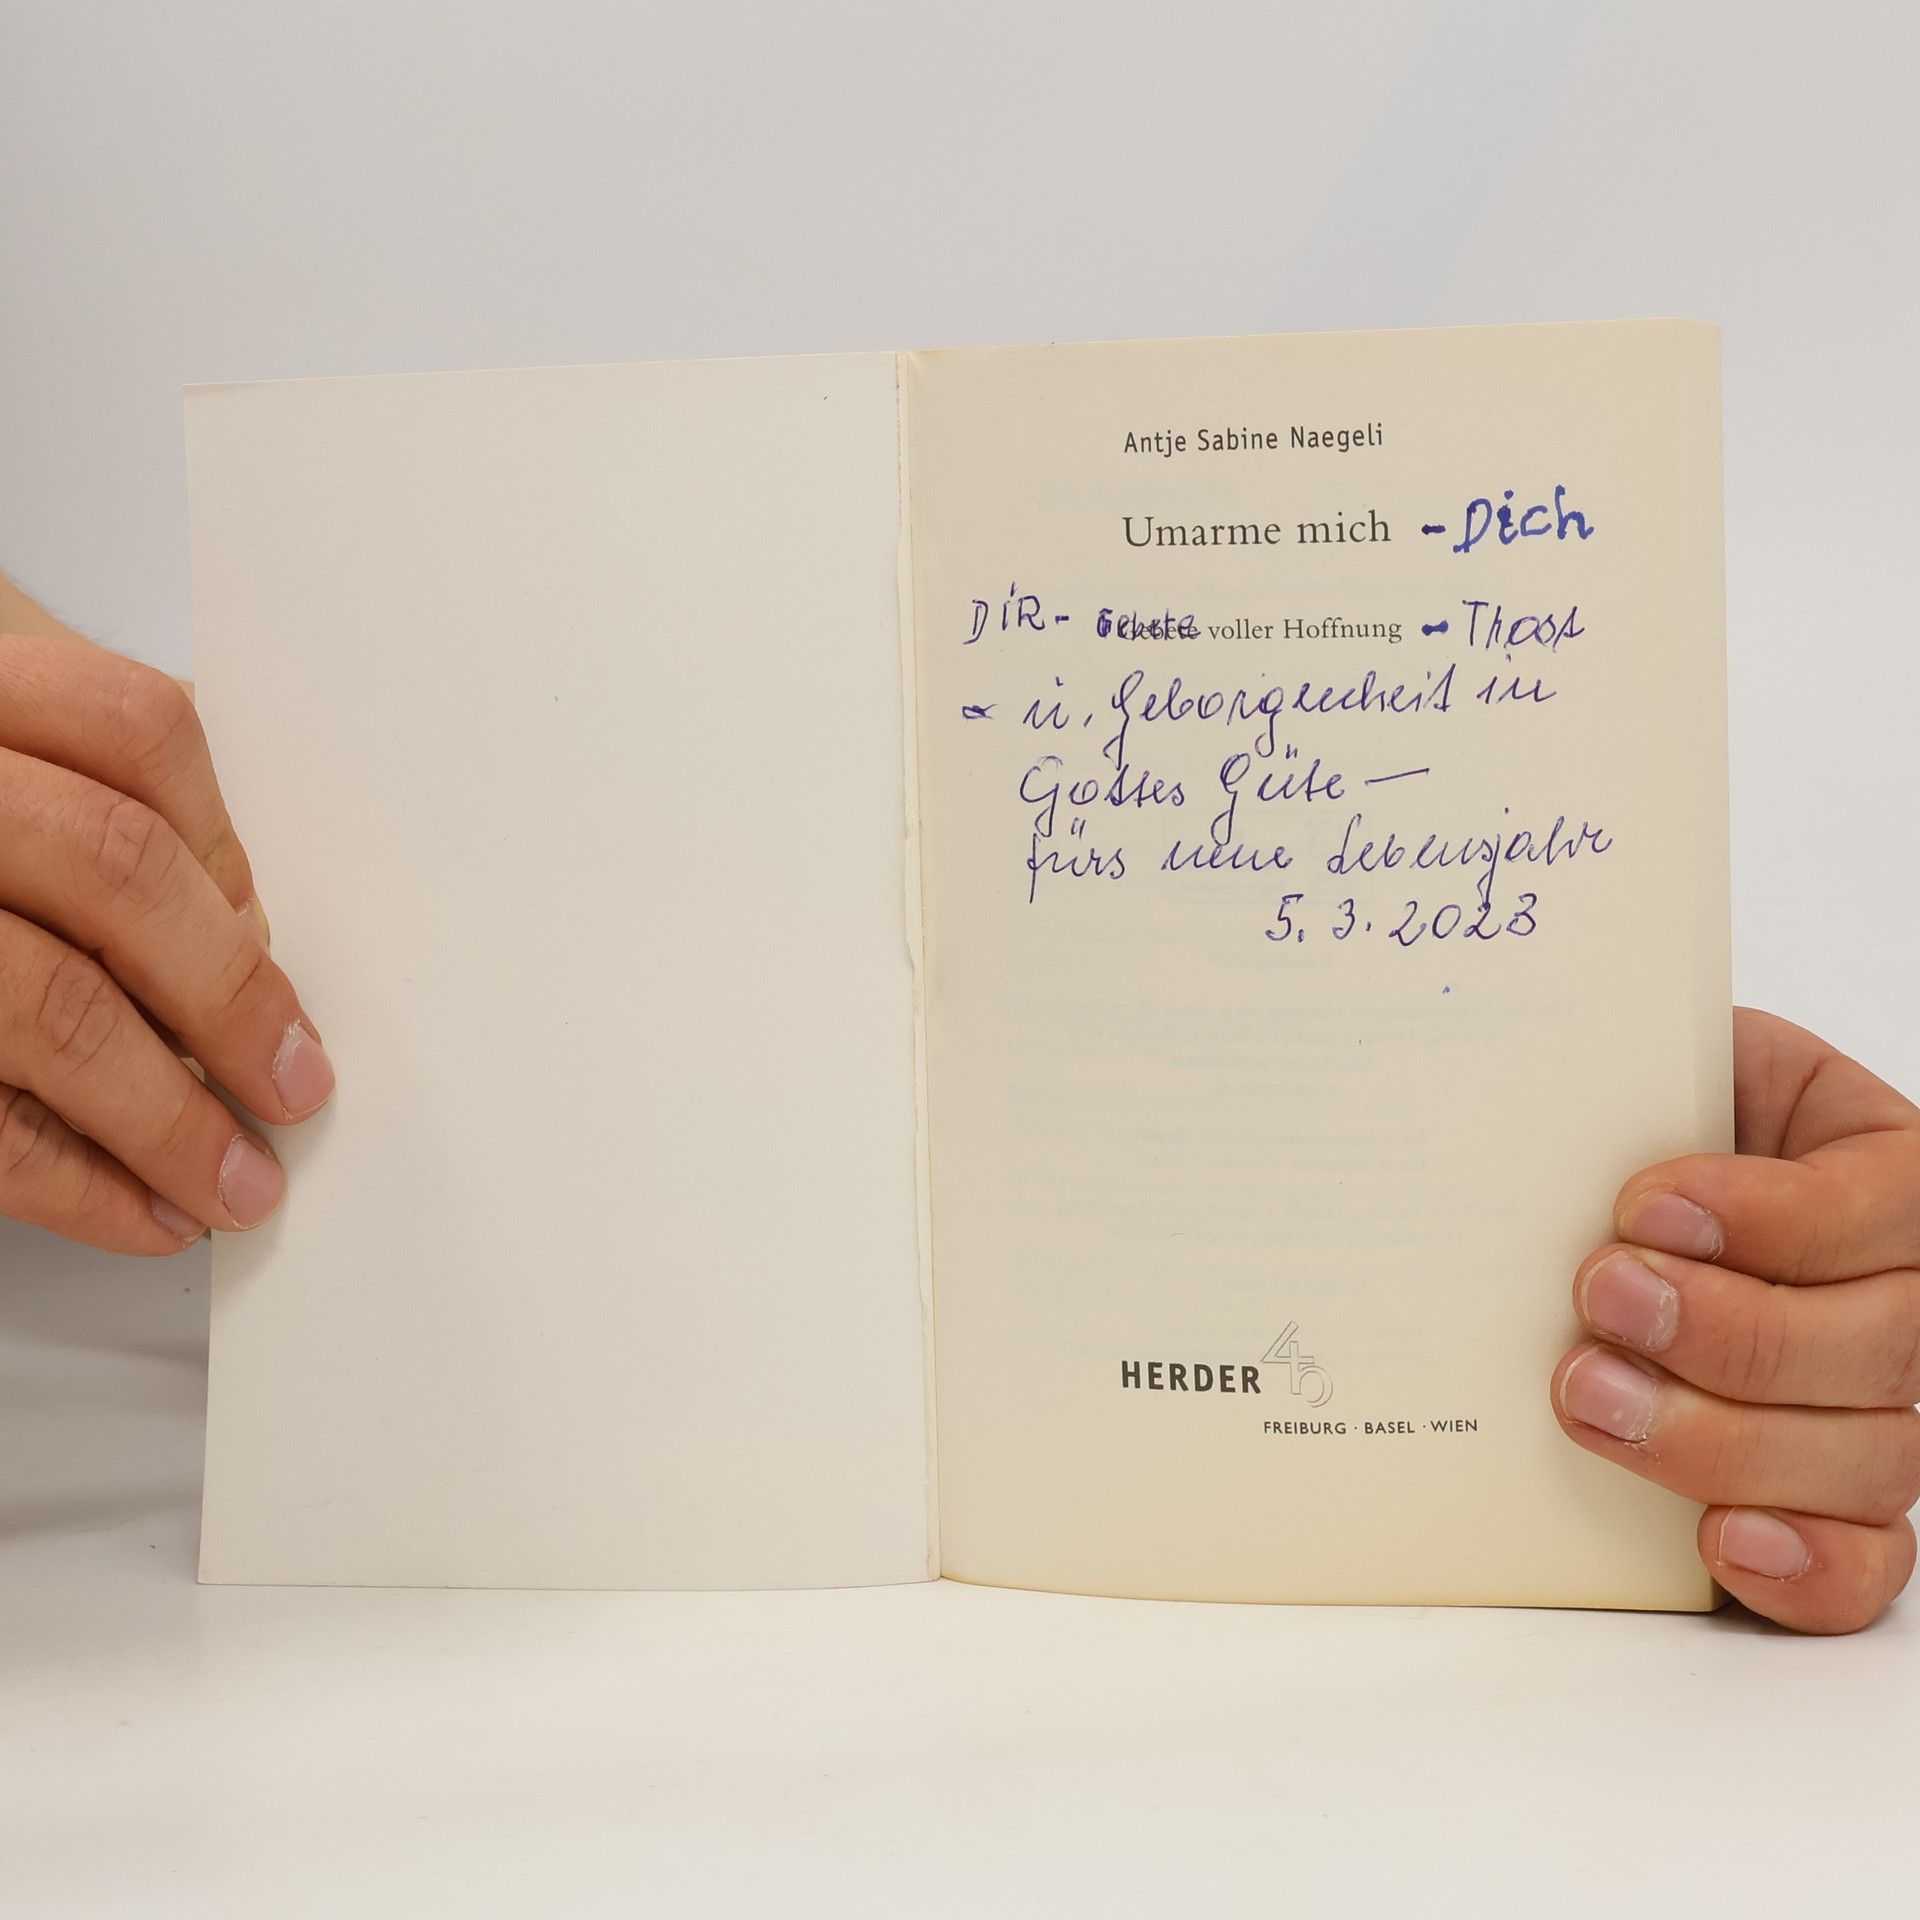 Antje Sabine Naegeli
Umarme mich - Dich
DIR - Gebete voller Hoffnung - Trost
u. Geborgenheit in
Gottes Güte —
fürs neue Lebensjahr
5. 3. 2023
HERDER 4/5
FREIBURG · BASEL · WIEN